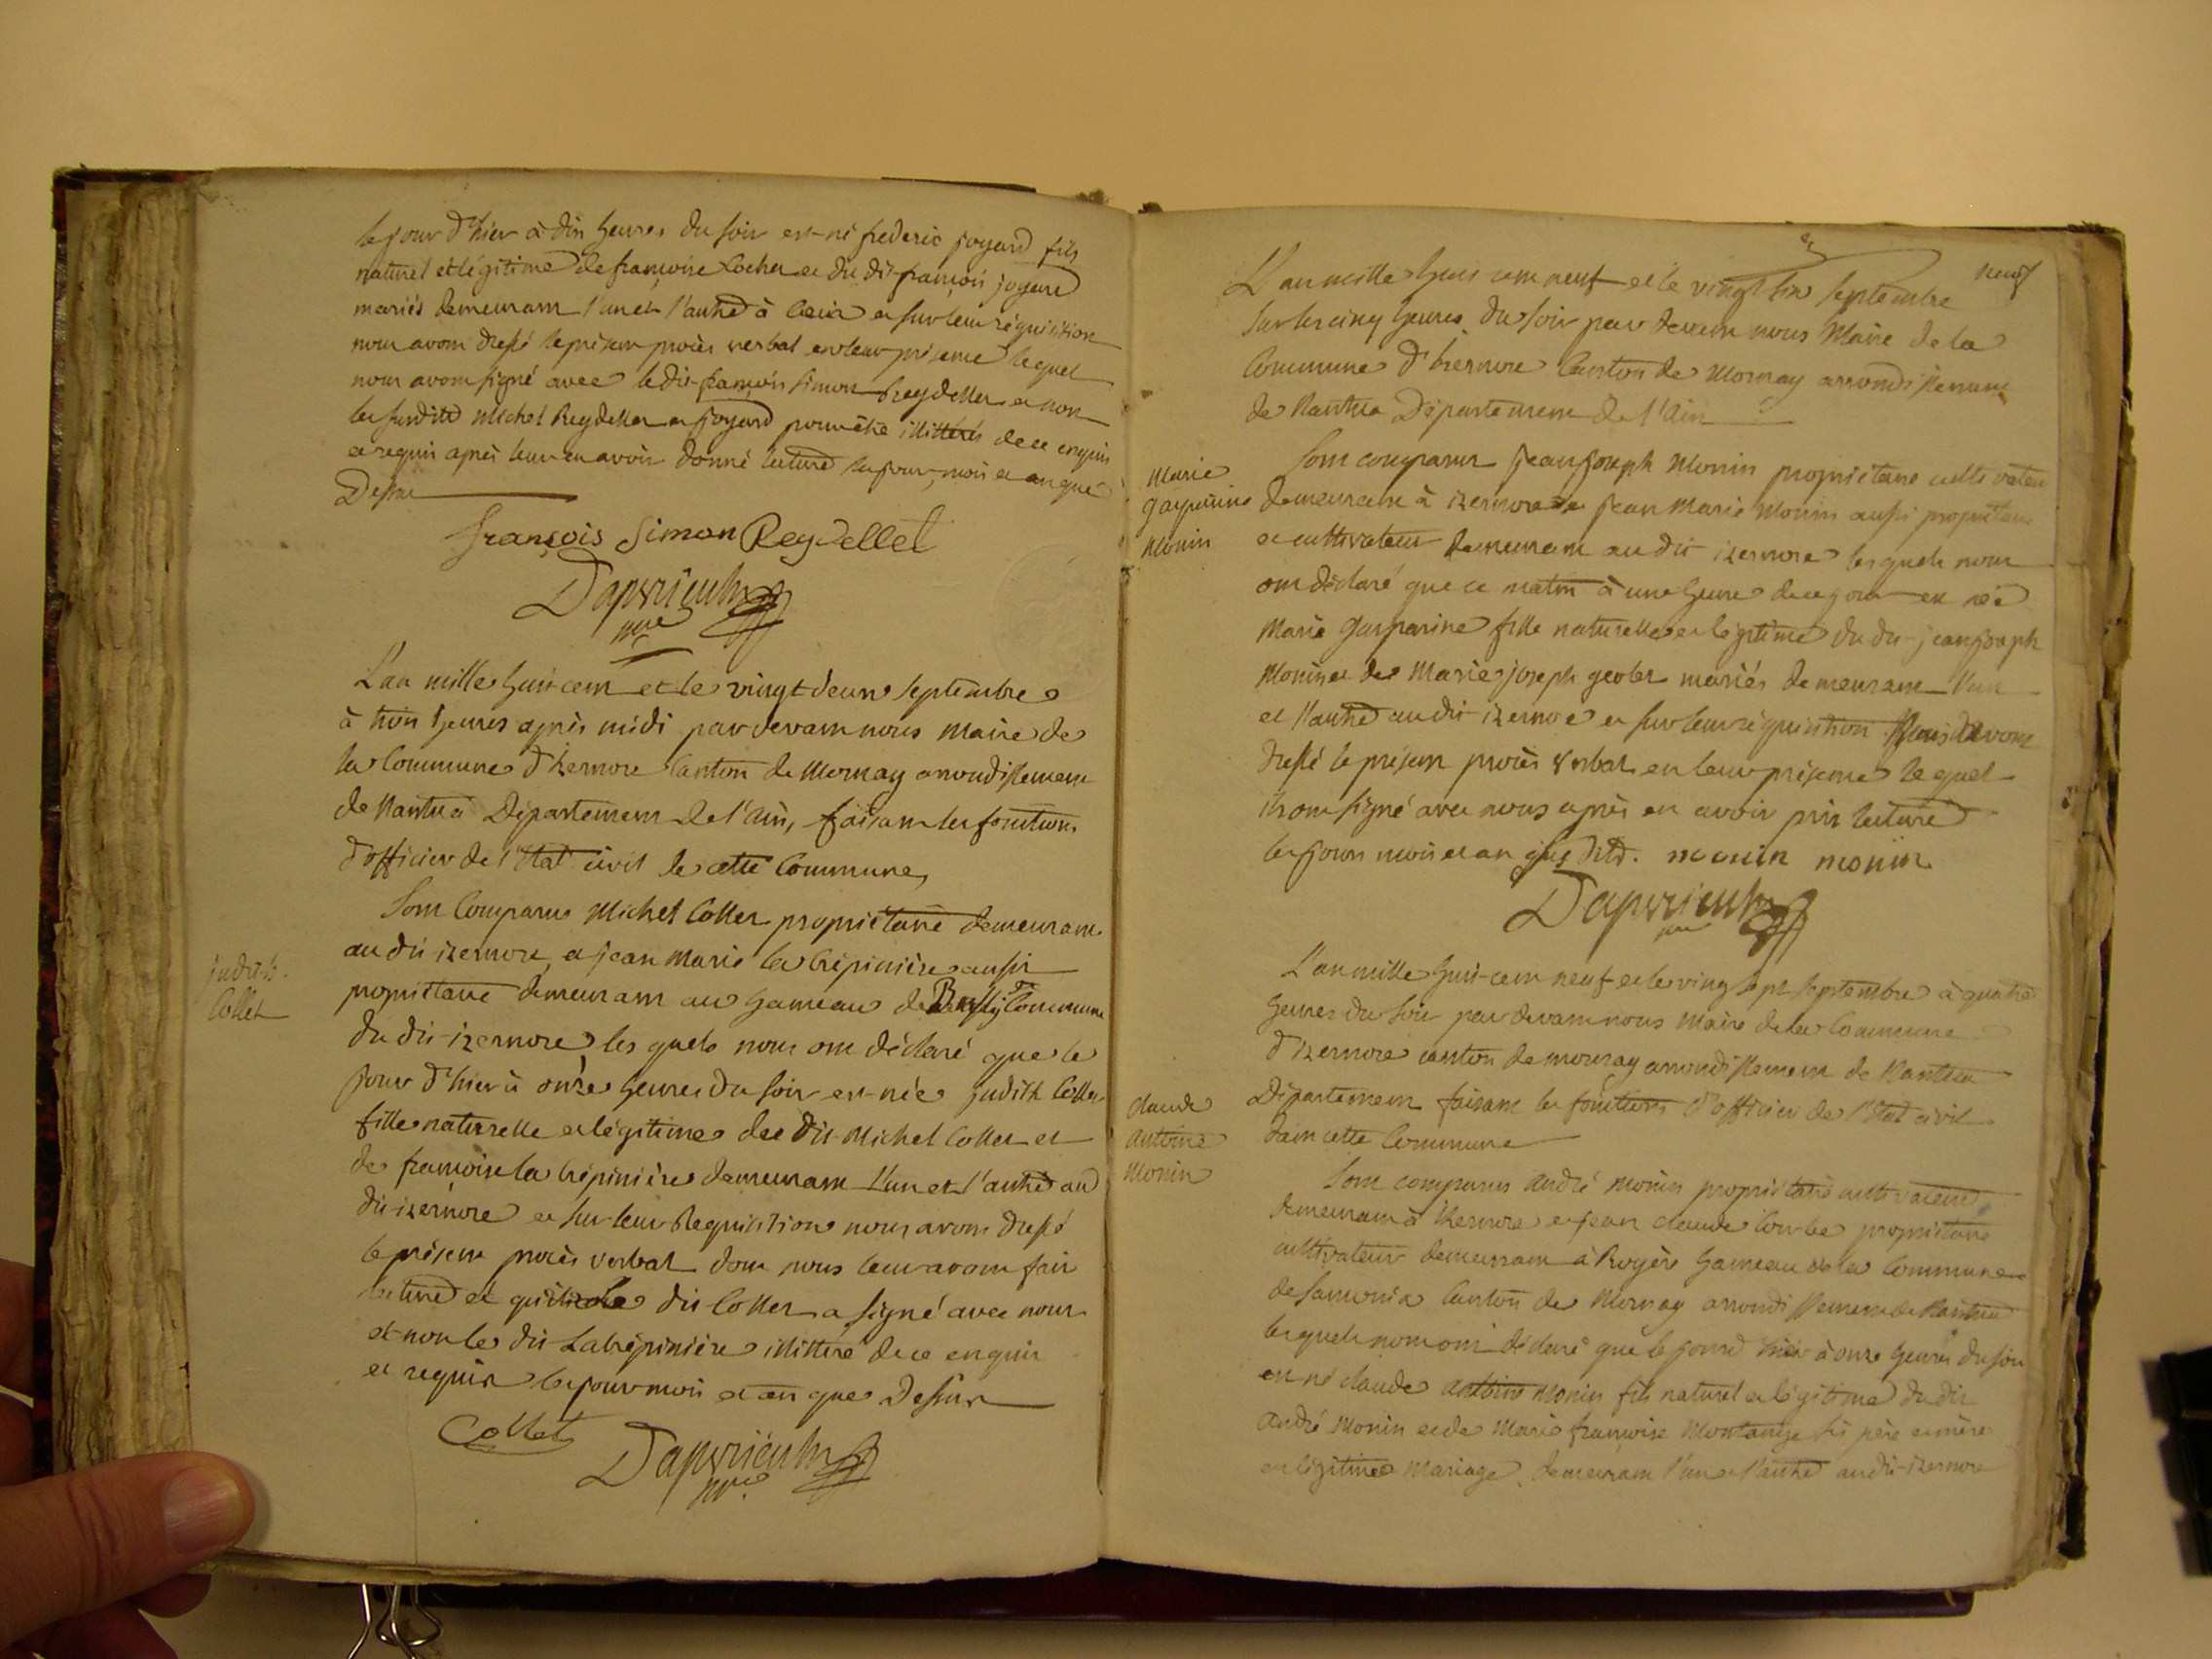 le jour d'hier à dix heures du soir est né frederic joyard fils
naturel et légitime de françoise Locher et du dit françois joyard
mariés demeurant l'un et l'autre à et sur leur réquisition
nous avons dressé le présent procès verbal en leur présence lequel
nous avons signé avec le dit françois simon Reydellet et non
les susdits Michel Reydellet et joyard pour être illitérés de ce enquis
et requis après leur en avoir donné lecture les jour, mois et an que
Dessus
François Simon Reydellet
mre
L'an mille huit cent et le vingt deux septembre
à trois heures après midi par devant nous maire de
la Commune d'Izernore Canton de Mornay arrondissement
de Nantua Département de l'Ain, faisant les fonctions
d'officier de l'Etat civil de cette Commune,
judith
Collet
Sont Comparus Michel Collet propriétaire demeurant
au dit izernore, et jean Marie la Crépinière aussi
propriétaire demeurant au hameau de Bussy Commune
du dit izernore, les quels nous ont déclaré que le
jour d'hier à onze heures du soir est née judith Collet
fille naturelle et légitime du dit Michel Collet et
de françoise la Crépinière demeurant l'un et l'autre au
dit izernore et sur leur Requisition nous avons dressé
le présent procès verbal dont nous leur avons fait
lecture et dit Collet a signé avec nous
et non le dit Lacrépinière illittéré de ce enquis
et requis les jour mois et an que Dessus
Collet
mre
neuf
L'an mille huit cent neuf et le vingt six septembre
Sur les cinq heures du soir par devant nous Maire de la
Commune d'Izernore Canton de Mornay arrondissement
de Nantua Département de l'Ain
Marie
gasparine
Monin
Sont comparus jean joseph Monin propriétaire cultivateur
demeurant à izernore et jean Marie Monin aussi propriétaire
et cultivateur demeurant au dit izernore les quels nous
ont déclaré que ce matin à une heure de ce jour est née
Marie gasparine fille naturelle et légitime du dit jean joseph
Monin et de Marie joseph mariés demeurant l'un
et l'autre au dit izernore et sur leur réquisition Nous avons
dressé le présent procès verbal en leur présence le quel
ils ont signé avec nous après en avoir pris lecture
les jours mois et an . monin monin
L'an mille huit cent neuf et le vingt sept septembre à quatre
heures du soir par devant nous Maire de la Commune
d'izernore canton de mornay arrondissement de Nantua
Département faisant les fonctions d'officier de l'Etat civil
dans cette Commune
claude
Antoine
Monin
Sont comparus andré monin propriétaire cultivateur
demeurant à izernore et jean claude propriétaire
cultivateur demeurant à Rogère hameau de la Commune
de Samonia Canton de Mornay arrondissement de Nantua
les quels nous ont déclaré que le jour d'hier à onze heures du soir
est né claude antoine Monin fils naturel et légitime du dit
andré Monin et de Marie françoise Montange ses père et mère
en légitime mariage demeurant l'un et l'autre au dit izernore